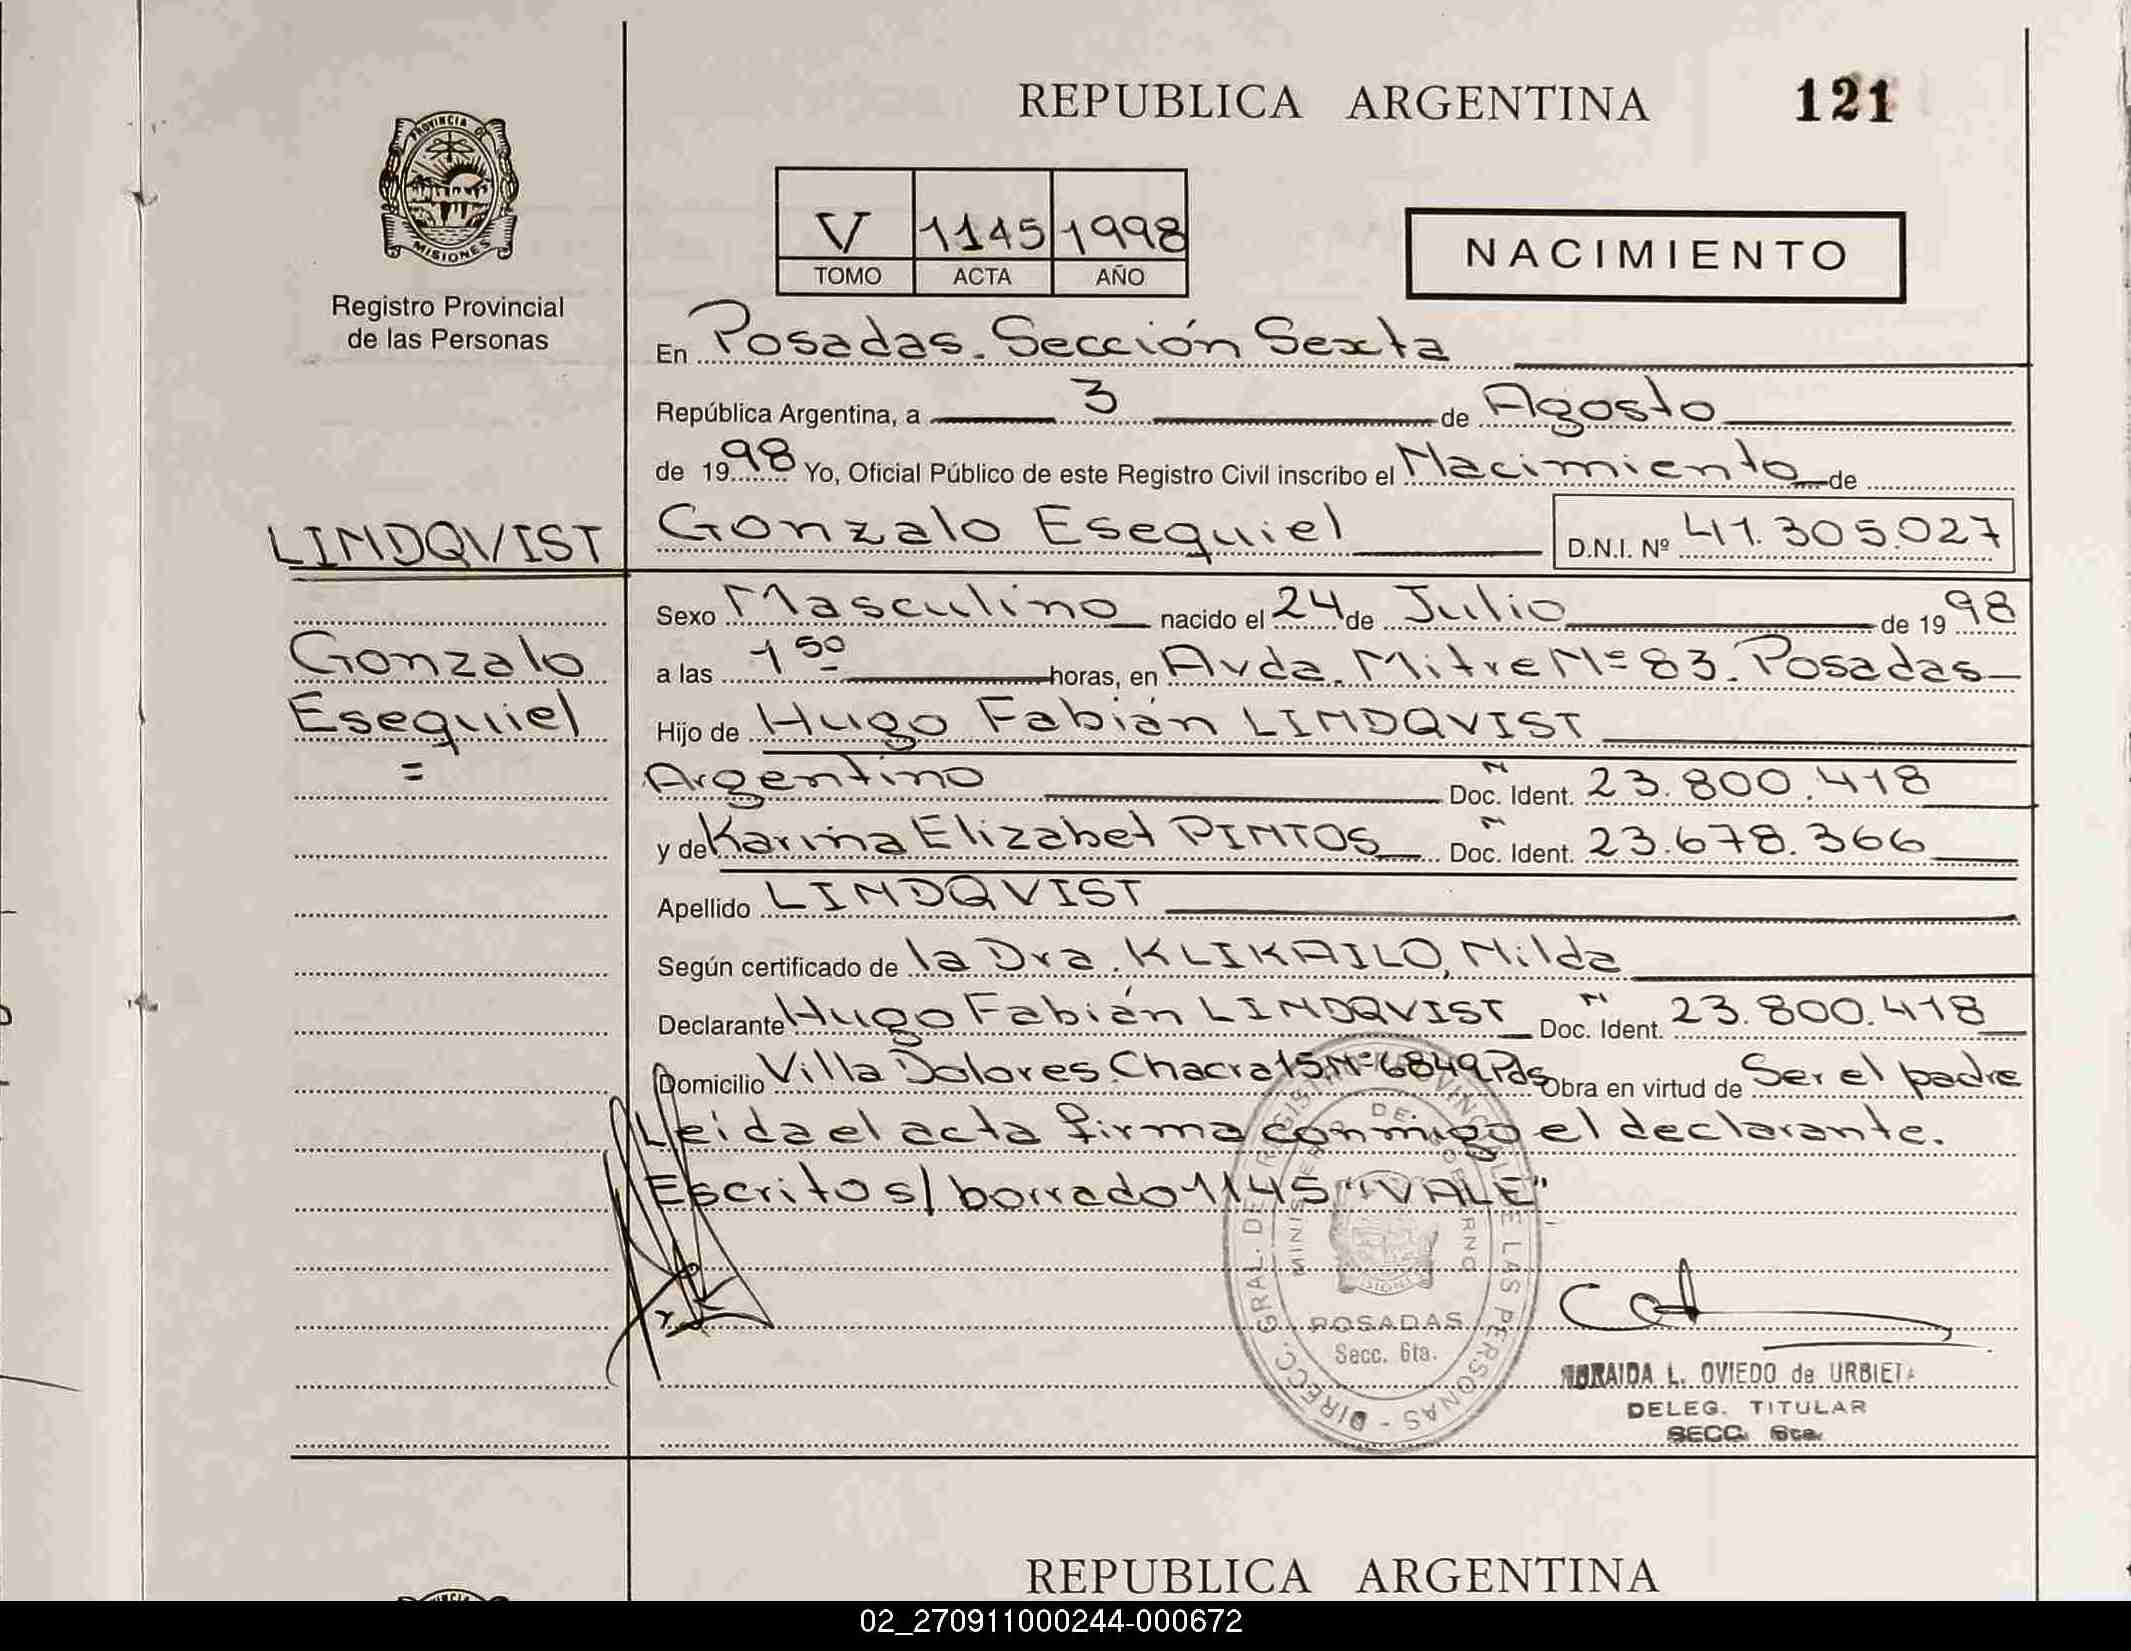 REPUBLICA ARGENTINA 121
PROVINCIA DE MISIONES
Registro Provincial
de las Personas
V 1145 1998
TOMO ACTA AÑO
NACIMIENTO
En Posadas. Sección Sexta
República Argentina, a 3 de Agosto
de 1998 Yo, Oficial Público de este Registro Civil inscribo el Nacimiento de
LINDQVIST
Gonzalo Esequiel D.N.I. Nº 41.305.027
Sexo Masculino nacido el 24 de Julio de 1998
Gonzalo
a las 1 50 horas, en Avda. Mitre Nº 83. Posadas
Esequiel
Hijo de Hugo Fabián LINDQVIST
=
Argentino Doc. Ident. N 23.800.418
y de Karina Elizabet PINTOS Doc. Ident. N 23.678.366
Apellido LINDQVIST
Según certificado de la Dra. KLIKAILO, Nilda
Declarante Hugo Fabián LINDQVIST Doc. Ident. N 23.800.418
Domicilio Villa Dolores. Chacra 15 Nº 6849 Pdas Obra en virtud de Ser el padre
Leida el acta firma conmigo el declarante.
Escrito s/ borrado 1145 "VALE"
DIRECC. GRAL. DE REGISTRO PROVINCIAL DE LAS PERSONAS
MINISTERIO DE GOBIERNO
POSADAS
Secc. 6ta.
L. OVIEDO de URBIETA
DELEG. TITULAR
SECC. 6ta.
REPUBLICA ARGENTINA
02_270911000244-000672